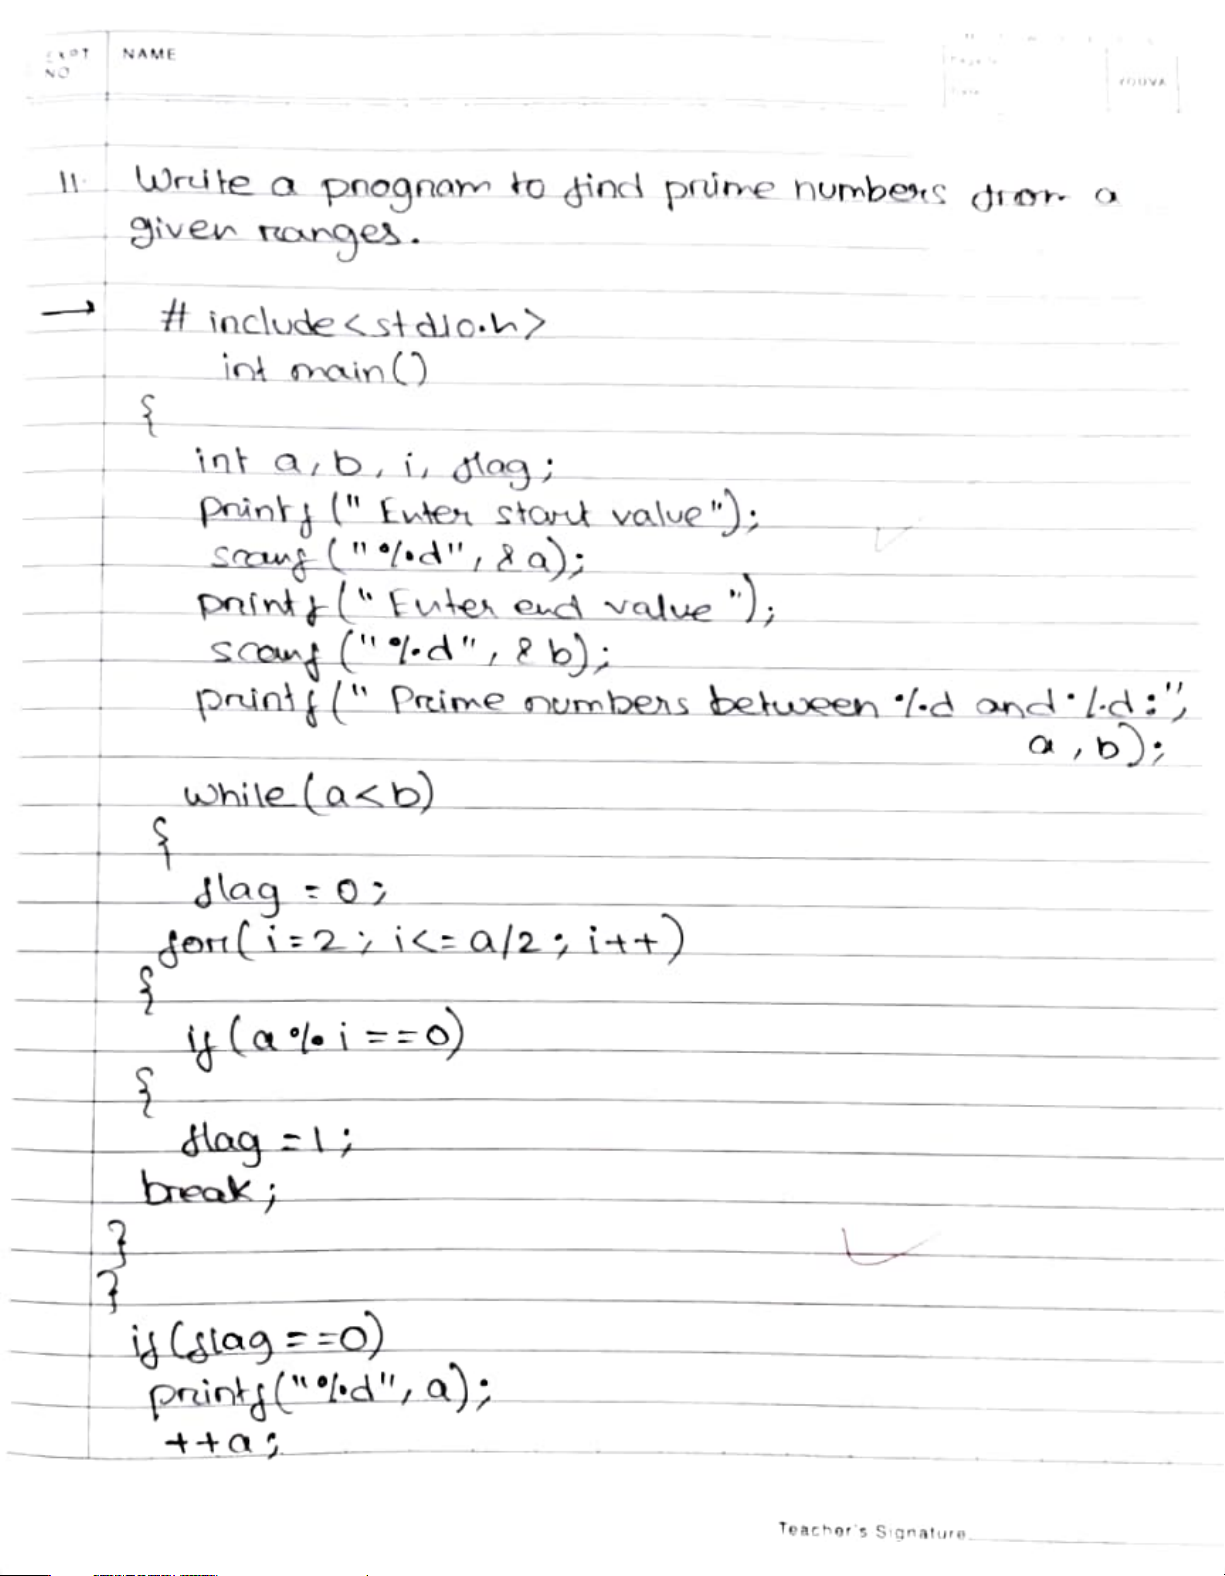 EXPT NO
NAME
YOUVA
11. Write a program to find prime numbers from a
given ranges.
→ # include<stdio.h>
int main()
{
int a, b, i, flag;
printf (" Enter start value");
scanf ("%d", &a);
printf (" Enter end value ");
scanf ("%d", & b);
printf (" Prime numbers between %d and %d:",
a, b);
while (a<b)
{
flag = 0;
for( i=2 ; i<= a/2 ; i++)
{
if (a % i ==0)
{
flag =1;
break;
}
}
if (flag ==0)
printf("%d", a);
++a;
Teacher's Signature